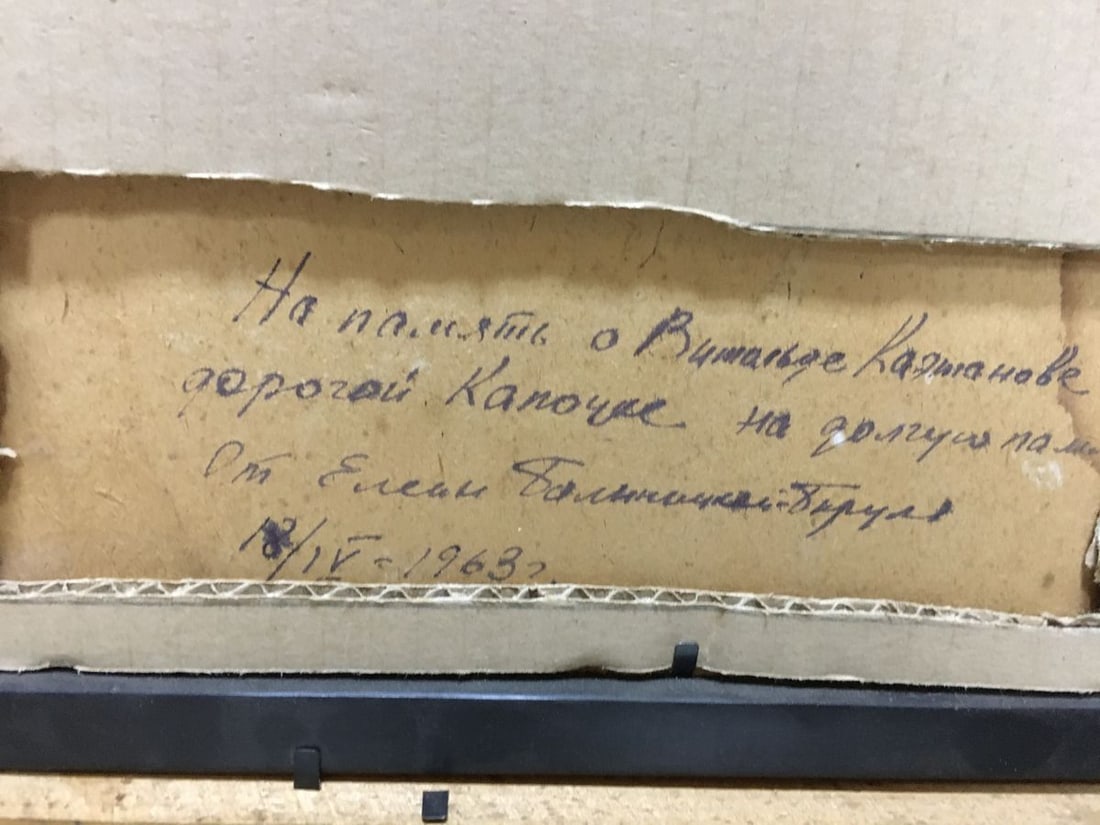 На память о Витольде Каэтанове
дорогой Капочке на долгую пам
От Елены Бялыницкой-Бируля
18/IV-1963г.